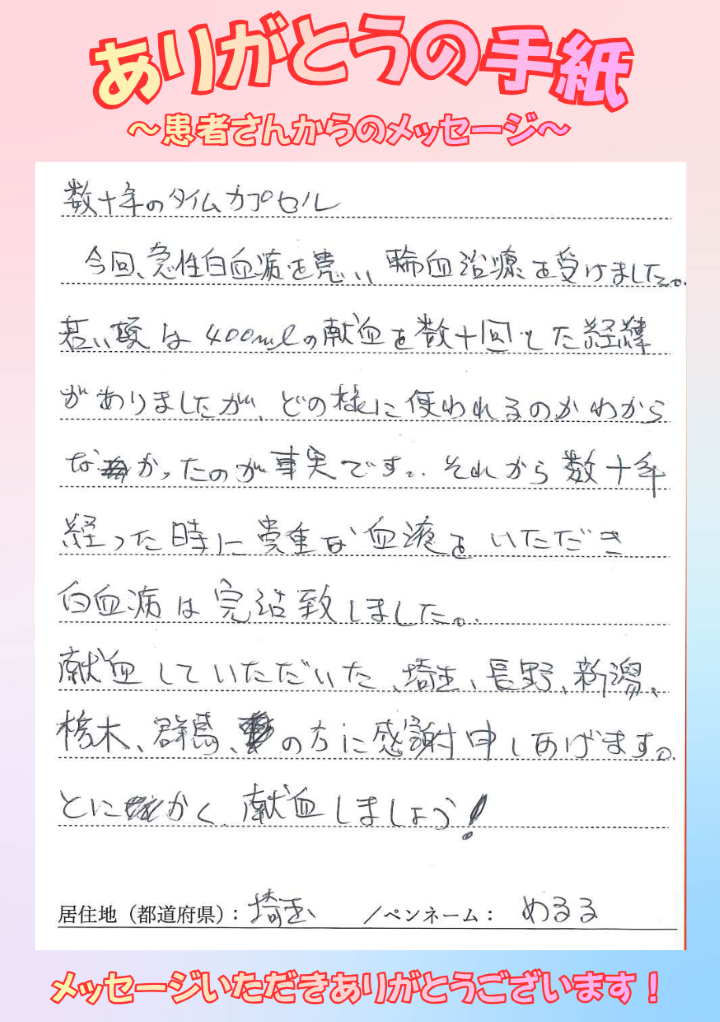 ありがとうの手紙
~患者さんからのメッセージ~
数十年のタイムカプセル
今回、急性白血病を患い、輸血治療を受けました。
若い頃は400mlの献血を数十回した経緯
がありましたが、どの様に使われるのかわから
なかったのが事実です。それから数十年
経った時に貴重な血液をいただき
白血病は完治致しました。
献血していただいた、埼玉、長野、新潟、
栃木、群馬、の方に感謝申しあげます。
とにかく、献血しましょう!
居住地(都道府県): 埼玉 /ペンネーム: めるる
メッセージいただきありがとうございます!